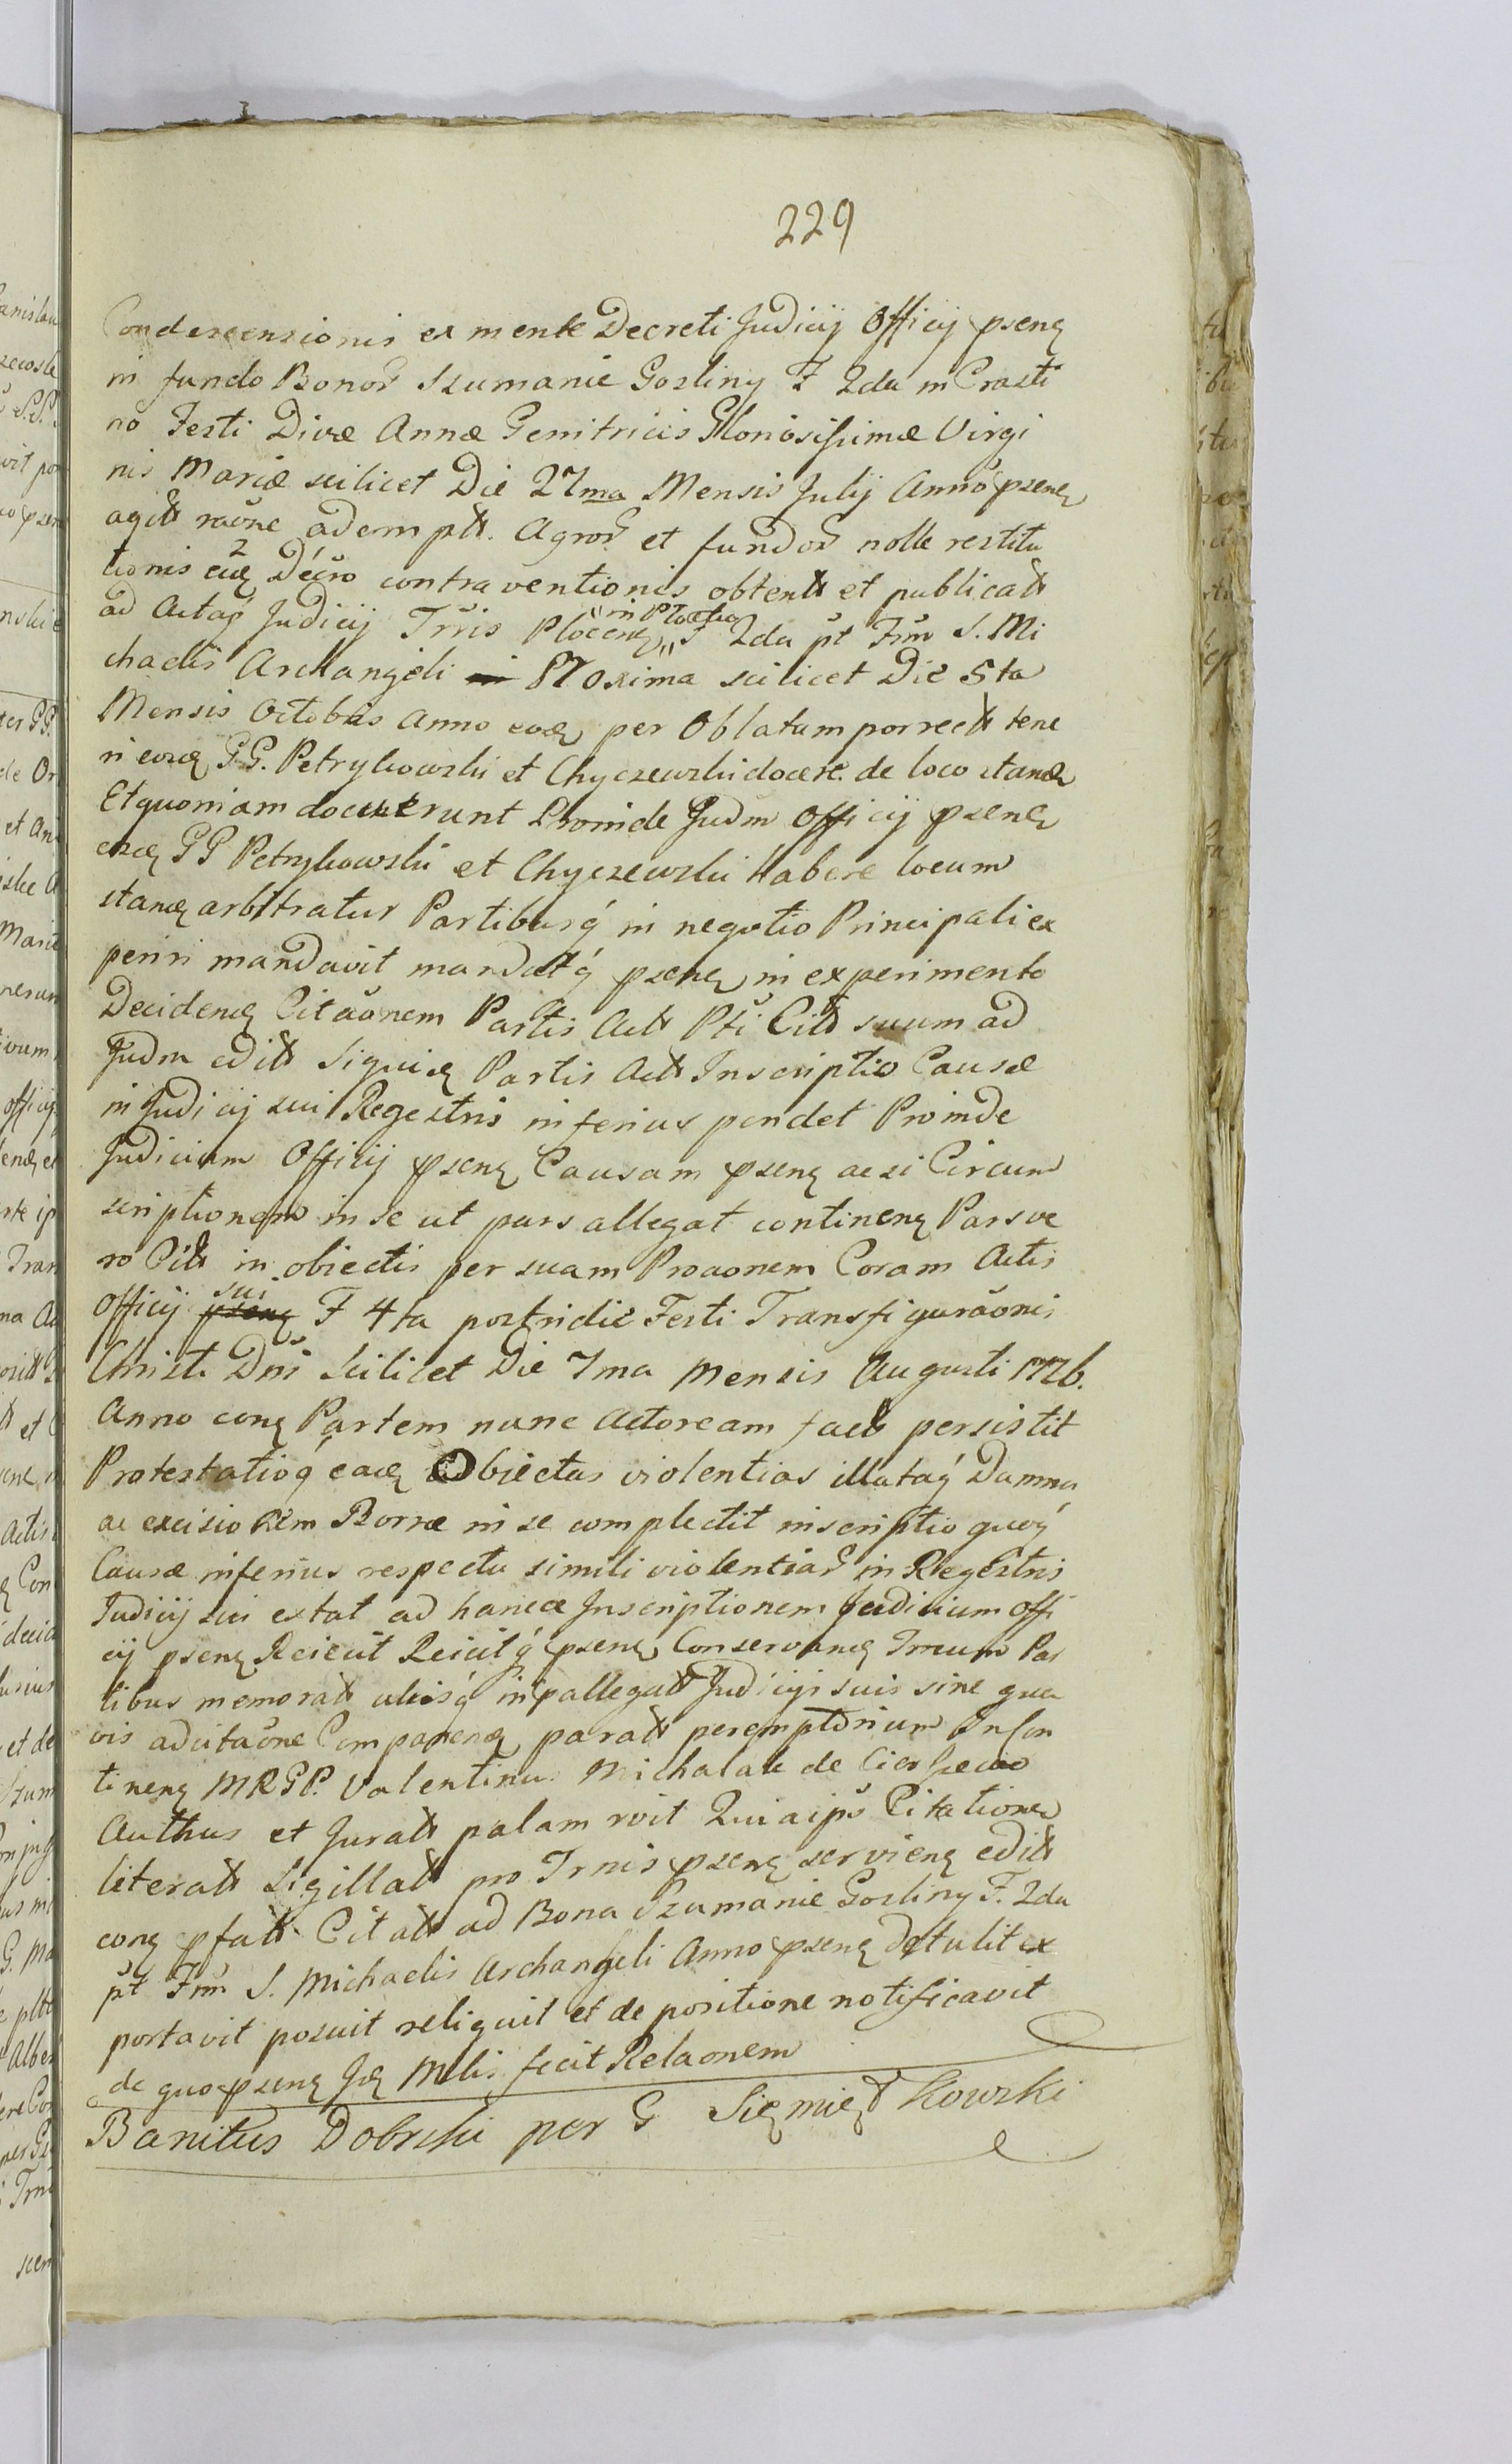 229
Condescensionis ex mente Decreti Judicij Officij psenę
in fundo Bonor Szumanie Gosliny F 2da in Crasti
no Festi Divæ Annæ Genitricis Gloriosissimæ Virgi
nis Mariæ scilicet Die 27ma Mensis Julij Anno psenę
agitt raõne ademptt. Agror et fundor nolle restitu
tionis 2 Decro contraventionis obtentt et publicatt
ad Actaq Judicij Trris Plocenę "in Plocko" F 2da pt Fm S. Mi
chaelis Archangeli Proxima scilicet Die 5ta
Mensis Octobris Anno eodę per Oblatam porrectt tene
ri eosdę GG. Petrykowski et Chyczewski docere de loco standę
Et quoniam docuerunt Proinde Judm Officij psenę
eosdę GG Petrykowski et Chyczewski habere locum
standę arbitratur Partibusq in negotio Principali ex
periri mandavit mandatq psenę in experimento
Decidenę Citaõnem Partis Actt Pti Citt suum ad
Judm editt Siquidę Partis Actt Inscriptio Causæ
in Judicij sui Regestris inferius pendet Proinde
Judicium Officij psenę Causam psenę ac si Circum
scriptionem in se ut pars allegat continenę Pars ve
ro Citt in obiectis per suam Proaonem Coram Actis
Officij sui F 4ta postridie Festi Transfiguraõnis
Christi Dni Scilicet Die 7ma Mensis Augusti 1726.
Anno conę Partem nunc Actoream factt persistit
Protestatioq eadę Obiectas violentias illataq Damna
ac excisionem Borræ in se complectit inscriptio quoq
Causæ inferius respectu simili violentiar in Regestris
Judicij sui extat ad hance Inscriptionem Judicium Offi
cij psenę Reiecit Reicitq psenę Conservandę Trreum Par
tibus memoratt aliisq inpallegatt Judicijs suis sine qua
vis adcitaõne Comparendę paratt peremptorium In Con
tinenę MRGP. Valentinu Michalak de
Authus et Juratt palam Quia ips Citationę
literatt Sigillatt pro Trnis psenę servienę editt
conę pfatt Citatt ad Bona Szumanie Gosliny F. 2da
pt Fm S. Michaelis Archangeli Anno psenę Detulit ex
portavit posuit reliquit et de positione notificavit
de quo psenę Jdę Mtlis fecit Relaonem
Banitus Dobrski per G Sięmiętkowski